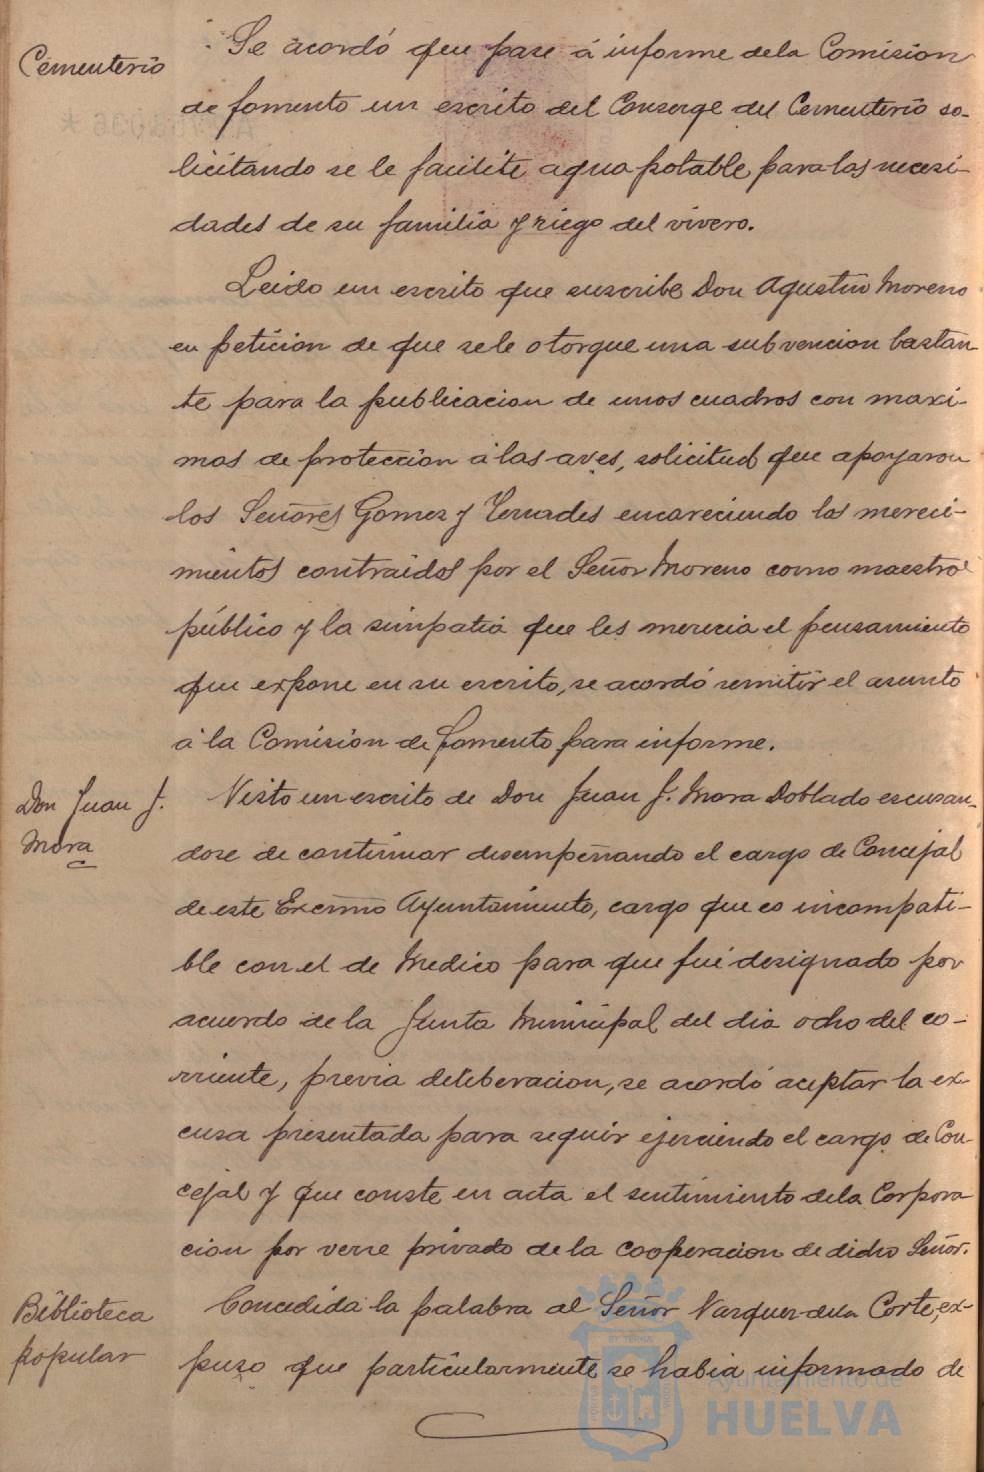 Cementerio
Se acordó que pase á informe dela Comision
de fomento un escrito del Conserge del Cementerio so-
licitando se le facilite agua potable para las necesi-
dades de su familia y riego del vivero.
Leido un escrito que suscribe Don Agustin Moreno
en peticion de que sele otorgue una subvencion bastan-
te para la publicacion de unos cuadros con maxi-
mas de protección á las aves, solicitud que apoyaron
los Señores Gomez y Terrades encareciendo los mereci-
mientos contraidos por el Señor Moreno como maestro
público y la simpatia que les merecia el pensamiento
que expone en su escrito, se acordó remitir el asunto
á la Comision de fomento para informe.
Don Juan J.
Mora
Visto un escrito de Don Juan J. Mora Doblado escusan-
dose de continuar desempeñando el cargo de Concejal
de este Excmo Ayuntamiento, cargo que es incompati-
ble con el de Medico para que fué designado por
acuerdo de la Junta Municipal del dia ocho del co-
rriente, previa deliberacion, se acordó aceptar la ex-
cusa presentada para seguir ejerciendo el cargo de Con-
cejal y que conste en acta el sentimiento dela Corpora
cion por verse privado de la cooperacion de dicho Señor.
Biblioteca
popular
Concedida la palabra al Señor Vazquez dela Corte, ex-
puso que particularmente se habia informado de
Ayuntamiento de
HUELVA